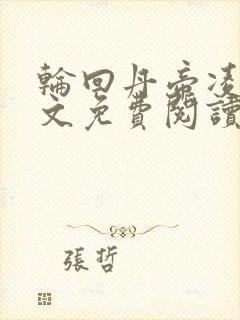 輪回丹帝凌
文免費閱讀
張哲